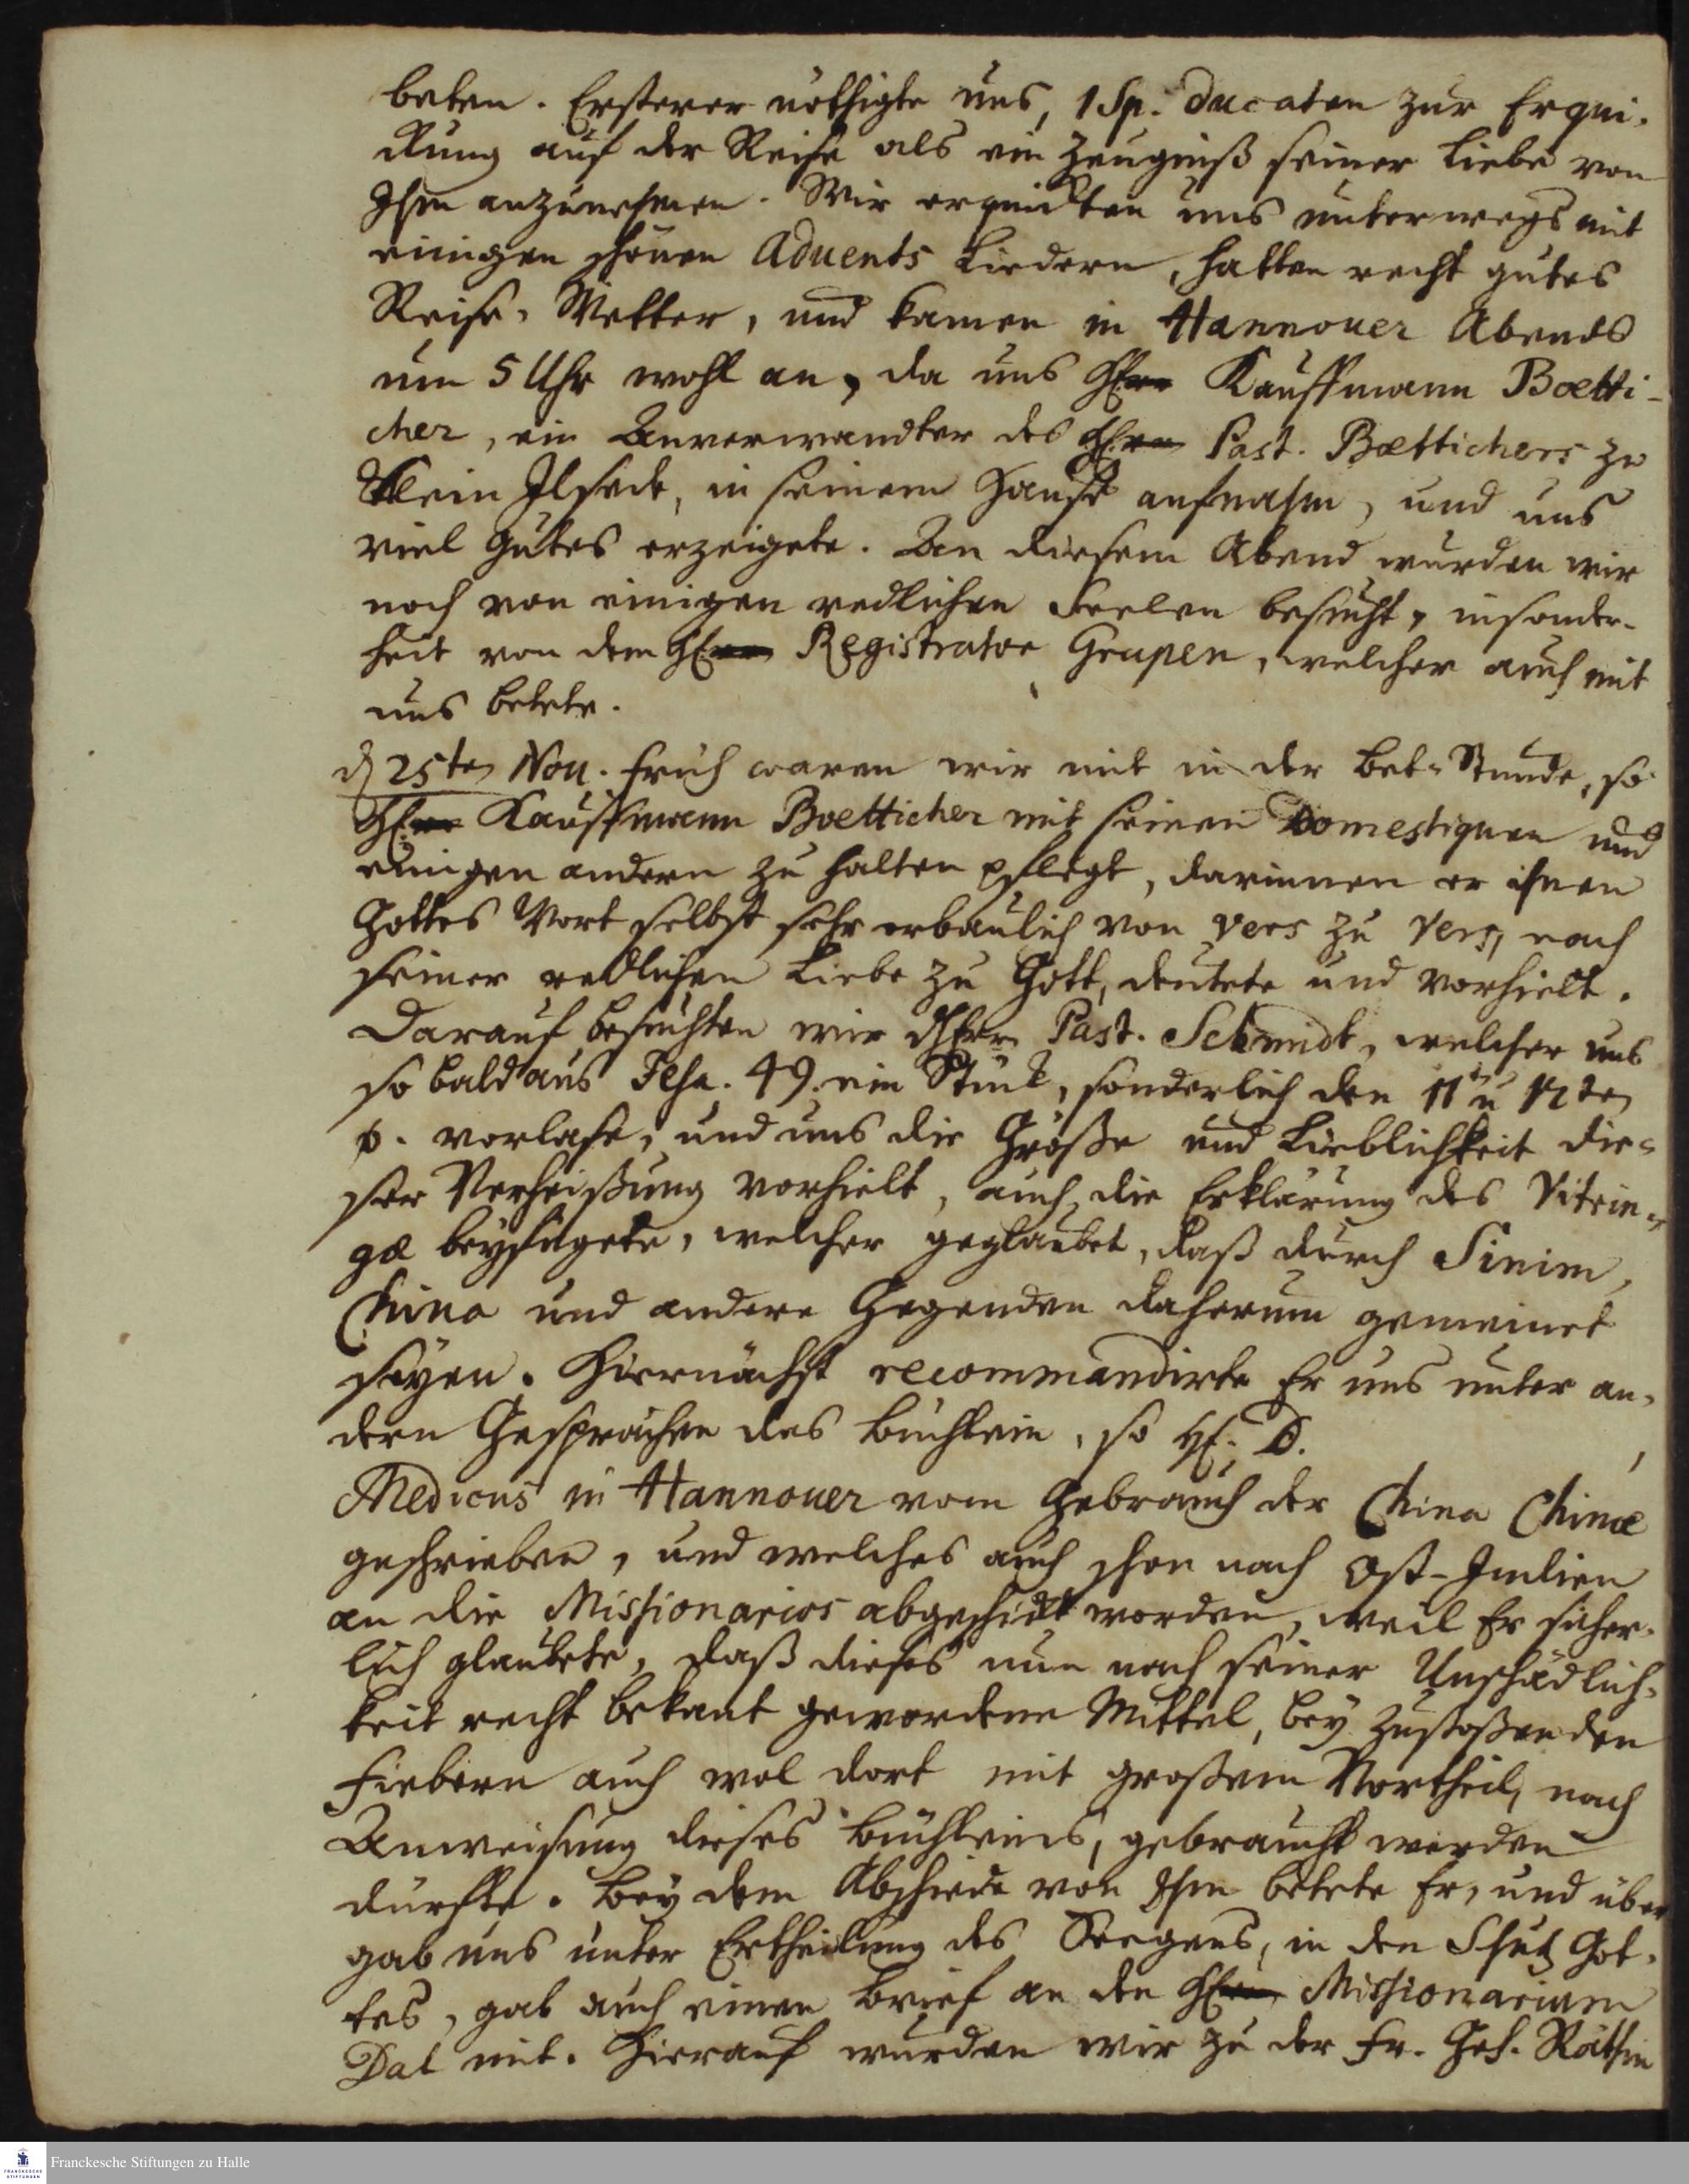 beten. Ersterer nöthigte uns, 1 Sp. Ducaten zur Erqui-
ckung auf der Reise als ein Zeugniß seiner Liebe von
Ihm anzunehmen. Wir erquickten uns unterwegs mit
einigen schönen Advents Liedern, hatten recht gutes
Reise-Wetter, und kamen in Hannover Abends
um 5 Uhr wohl an, da uns H. Kauffmann Boetti-
cher, ein Anverwandter des H. Past. Bættichers zu
Klein Ilsede, in seinem Hause aufnahm, und uns
viel Gutes erzeigete. An diesem Abend wurden wir
noch von einigen redlichen Seelen besucht, insonder-
heit von dem H. Registrator Grupen, welcher auch mit
uns betete.
d 25ten Nov. früh waren wir mit in der Bet-Stunde, so
H. Kauffmann Boetticher mit seinen Domestiquen und
einigen andern zu halten pflegt, darinnen er ihnen
Gottes Wort selbst sehr erbaulich von Vers zu Vers, nach
seiner redlichen Liebe zu Gott, deutete und vorhielt.
Darauf besuchten wir Herrn Past. Schmidt, welcher uns
so bald aus Jesa. 49. ein Stück, sonderlich den 11 u 12ten
v. vorlase, und uns die Größe und Lieblichkeit die-
ser Verheißung vorhielt, auch die Erklärung des Vitrin-
gæ beyfügete, welcher geglaubet, daß durch Sinim,
China und andere Gegenden daherum gemeinet
seyen. Hiernächst recommandirte Er uns unter an-
dern Gesprächen das Büchlein, so H. D.
Medicus in Hannover vom Gebrauch der China Chinæ
geschrieben, und welches auch schon nach Ost-Indien
an die Missionarios abgeschickt worden, weil Er sicher-
lich glaubete, daß dieses nun nach seiner Unschädlich-
keit recht bekant gewordene Mittel, bey zustoßenden
Fiebern auch wol dort mit großem Vortheil, nach
Anweisung dieses Büchleins, gebraucht werden
dürffte. Bey dem Abschiede von Ihm betete Er, und über
gab uns unter Ertheilung des Seegens, in den Schutz Got-
tes, gab auch einen Brief an den H. Missionarium
Dal mit. Hierauf wurden wir zu der Fr. Geh. Räthin
Franckesche Stiftungen zu Halle